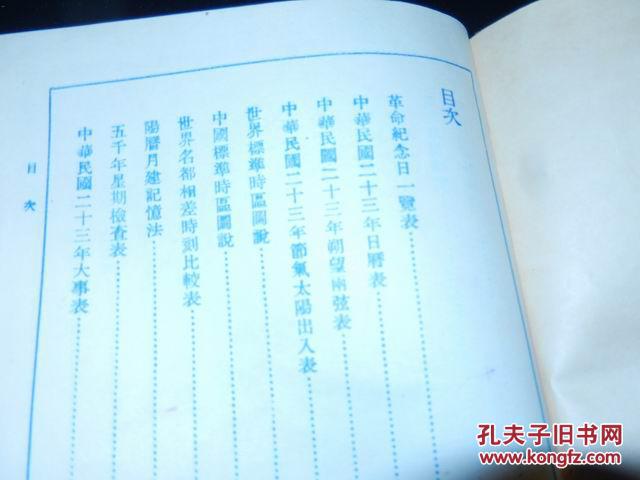 目次
革命紀念日一覽表
中華民國二十三年日曆表
中華民國二十三年朔望兩弦表
中華民國二十三年節氣太陽出入表
世界標準時區圖說
中國標準時區圖說
世界名都相差時刻比較表
陽曆月建記憶法
五千年星期檢查表
中華民國二十三年大事表
目次
孔夫子旧书网
www.kongfz.com